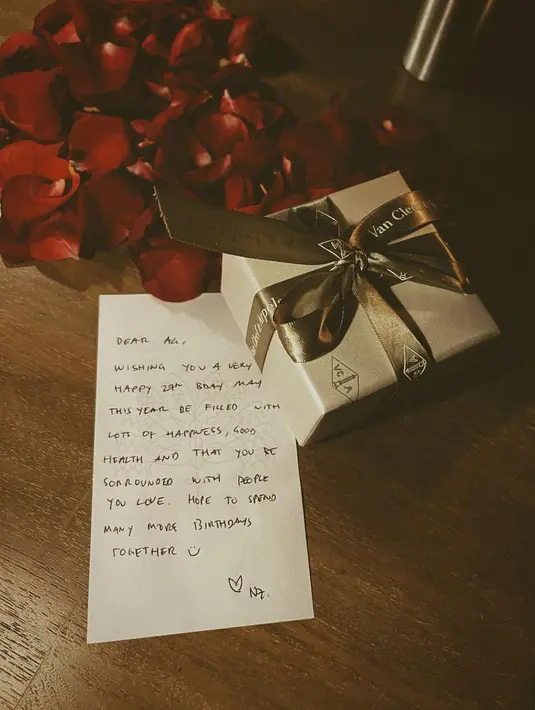 Van Clee
VCA
DEAR AG,
WISHING YOU A VERY
HAPPY 28th BDAY MAY
THIS YEAR BE FILLED WITH
LOTS OF HAPPINESS, GOOD
HEALTH AND THAT YOU BE
SORROUNDED WITH PEOPLE
YOU LOVE. HOPE TO SPEND
MANY MORE BIRTHDAYS
TOGETHER
NZ.